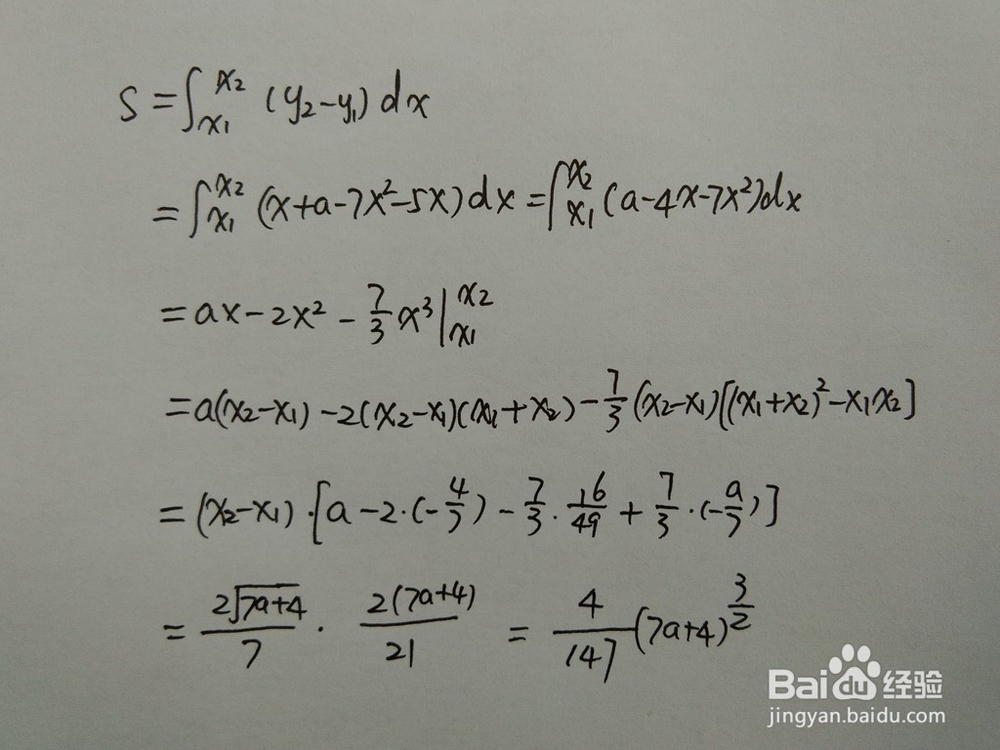 S = ∫_{x₁}^{x₂} (y₂-y₁) dx
= ∫_{x₁}^{x₂} (x+a-7x²-5x) dx = ∫_{x₁}^{x₂} (a-4x-7x²) dx
= ax-2x² - 7/3 x³ |_{x₁}^{x₂}
= a(x₂-x₁) -2(x₂-x₁)(x₁+x₂) - 7/3 (x₂-x₁)[(x₁+x₂)²-x₁x₂]
= (x₂-x₁)·[a-2·(-4/7) - 7/3 · 16/49 + 7/3 ·(-a/7)]
= 2√(7a+4)/7 · 2(7a+4)/21 = 4/147 (7a+4)^{3/2}
Baidu 经验
jingyan.baidu.com